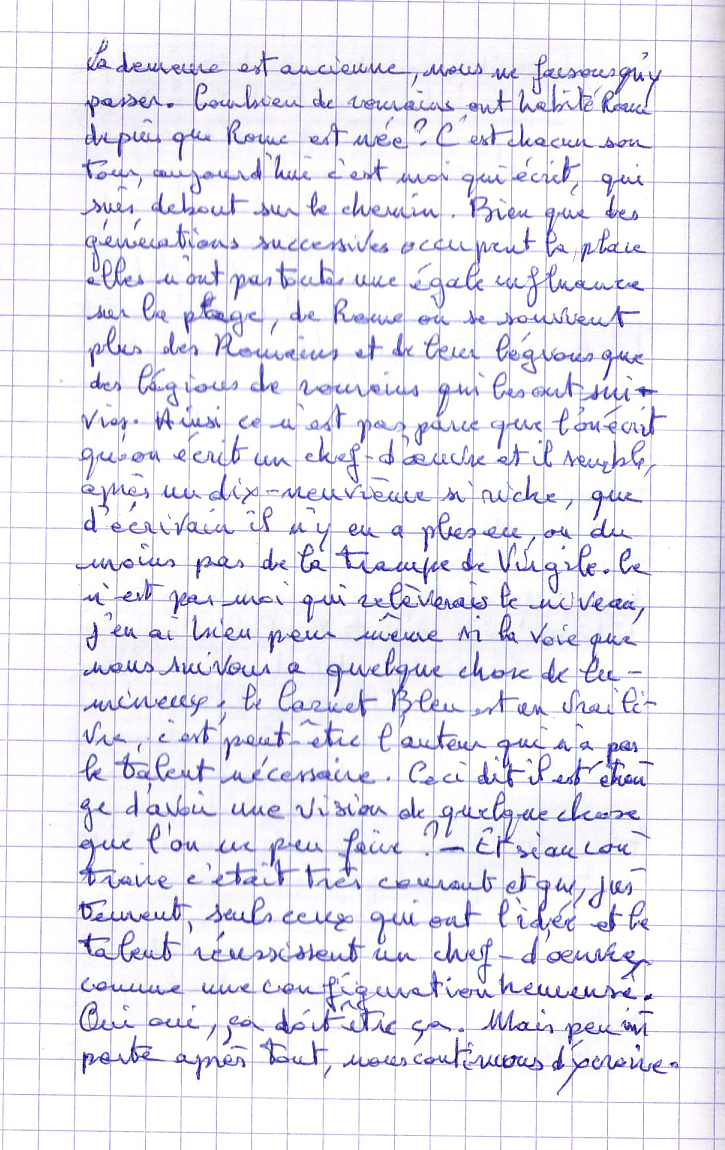 La demeure est ancienne, nous ne faisons qu'y
passer. Combien de romains ont habité Rome
depuis que Rome est née? C'est chacun son
tour, aujourd'hui c'est moi qui écrit, qui
suis debout sur le chemin. Bien que des
générations successives occupent la place
elles n'ont pas toutes une égale influence
sur la plage, de Rome on se souvient
plus des Romains et de leur légions que
des légions de romains qui les ont sui-
vies. Ainsi ce n'est pas parce que l'on écrit
qu'on écrit un chef-d'œuvre et il semble,
après un dix-neuvième si riche, que
d'écrivain il n'y en a plus eu, ou du
moins pas de la trempe de Virgile. Ce
n'est pas moi qui relèverais le niveau,
j'en ai bien peur même si la voie que
nous suivons a quelque chose de lu-
mineux, le Carnet Bleu est un vrai li-
vre, c'est peut-être l'auteur qui n'a pas
le talent nécessaire. Ceci dit il est étran
ge d'avoir une vision de quelque chose
que l'on ne peu faire? - Et si au con
traire c'était très courant et que, jus
tement, seuls ceux qui ont l'idée et le
talent réussissent un chef-d'œuvre,
comme une configuration heureuse.
Oui oui, ça doit être ça. Mais peu im
porte après tout, nous continuons d'écrire.